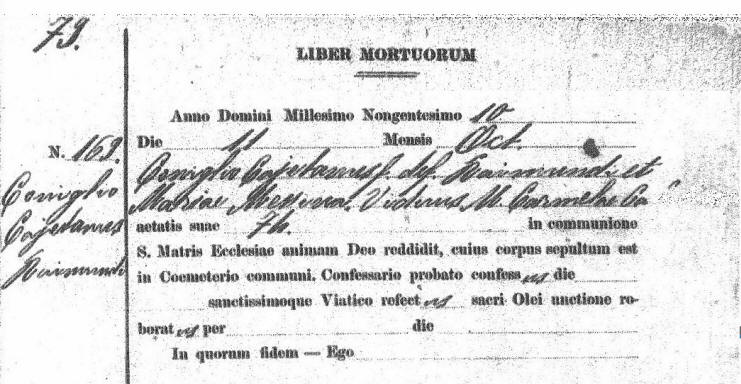 79.
LIBER MORTUORUM
Anno Domini Millesimo Nongentesimo 10
N. 169.
Die 11 Mensis Oct.
Coniglio Cajetanus f. def. Raimundi et
Mariae Messina. Viduus M. Carmelae Ca
Coniglio
Cajetanus
Raimundi
aetatis suae 74. in communione
S. Matris Ecclesiae animam Deo reddidit, cuius corpus sepultum est
in Coemeterio communi. Confessario probato confess us die
sanctissimoque Viatico refect us sacri Olei unctione ro-
borat us per die
In quorum fidem — Ego